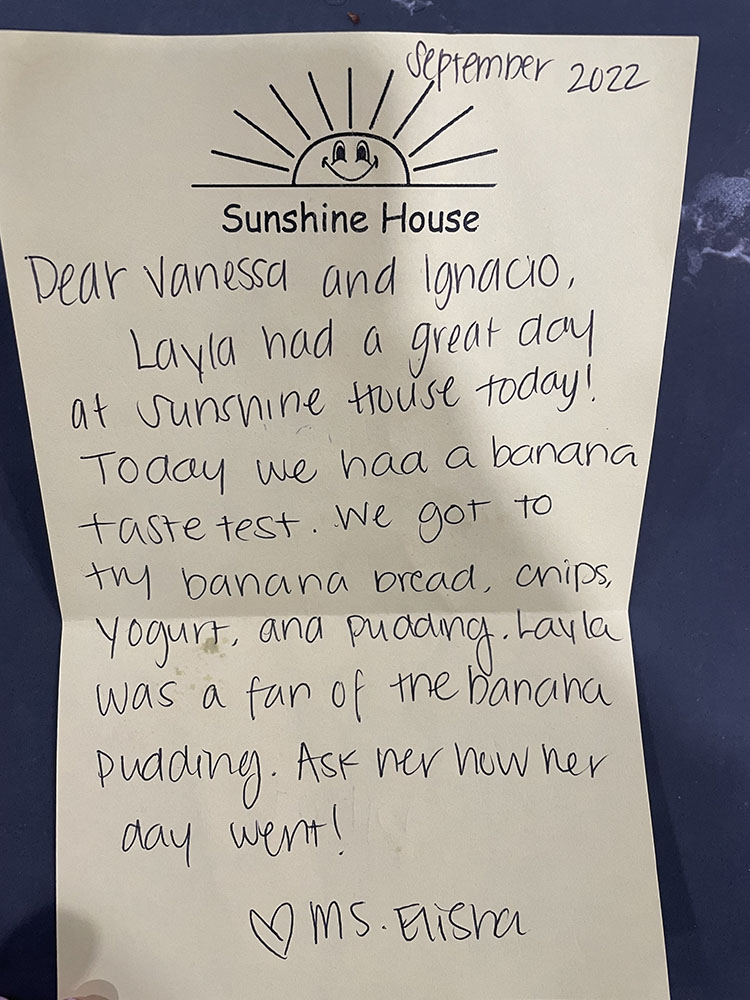 September 2022
Sunshine House
Dear Vanessa and Ignacio,
Layla had a great day
at Sunshine House today!
Today we had a banana
taste test. We got to
try banana bread, chips,
yogurt, and pudding. Layla
was a fan of the banana
pudding. Ask her how her
day went!
♡ Ms. Elisha